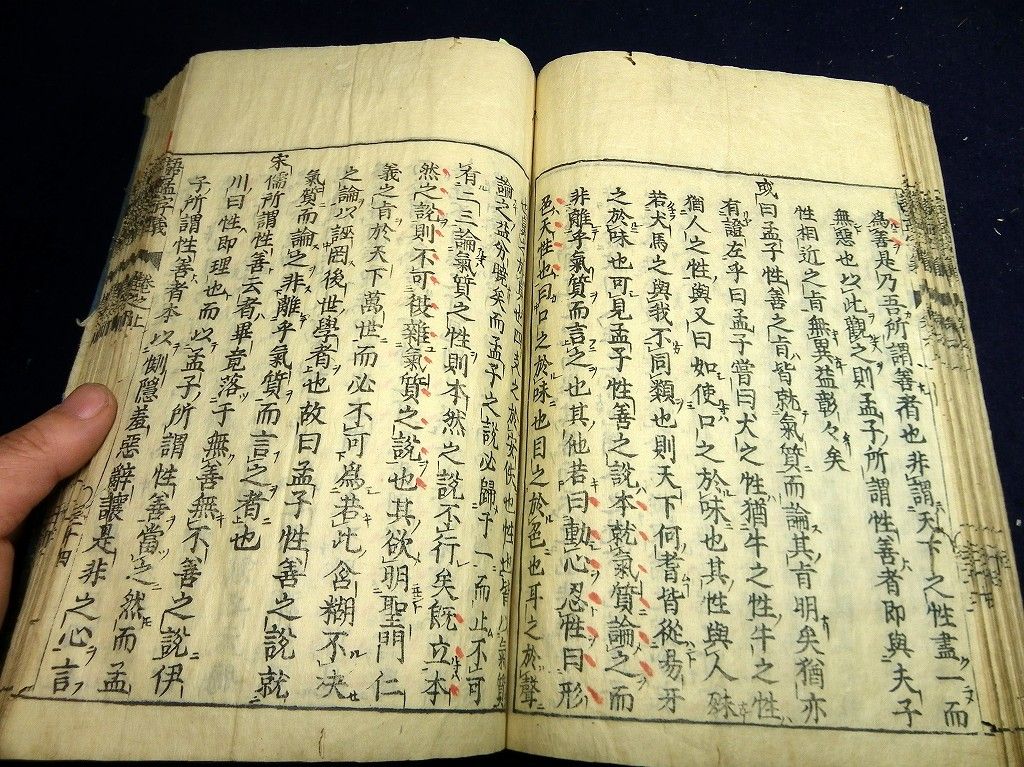 爲善是乃吾所謂善者也非謂天下之性盡一而
無惡也以此觀之則孟子所謂性善者即與夫子
性相近之旨無異益彰々矣
或曰孟子性善之旨皆就氣質而論其旨明矣猶亦
有證左乎曰孟子嘗曰犬之性猶牛之性牛之性
猶人之性與又曰如使口之於味也其性與人殊
若犬馬之與我不同類也則天下何耆皆從易牙
之於味也可見孟子性善之說本就氣質論之而
非離乎氣質而言之也其他若曰動心忍性曰形
色天性也曰口之於味也目之於色也耳之於聲
也四支之於安佚也性也皆
論之益分曉矣而孟子之說必歸于一而止不可
有二三論氣質之性則本然之說不行矣既立本
然之說則不可從雜氣質之說也其欲明聖門仁
義之旨於天下萬世而必不可爲若此含糊不决
之論以誣罔後世學者也故曰孟子性善之說就
氣質而論之非離乎氣質而言之者也
宋儒所謂性善云者畢竟落于無善無不
川曰性即理也而以孟子所謂性善之說伊
子所謂性善者本以惻隱羞惡辭讓是非之心言
語孟字義 卷之上 三十四